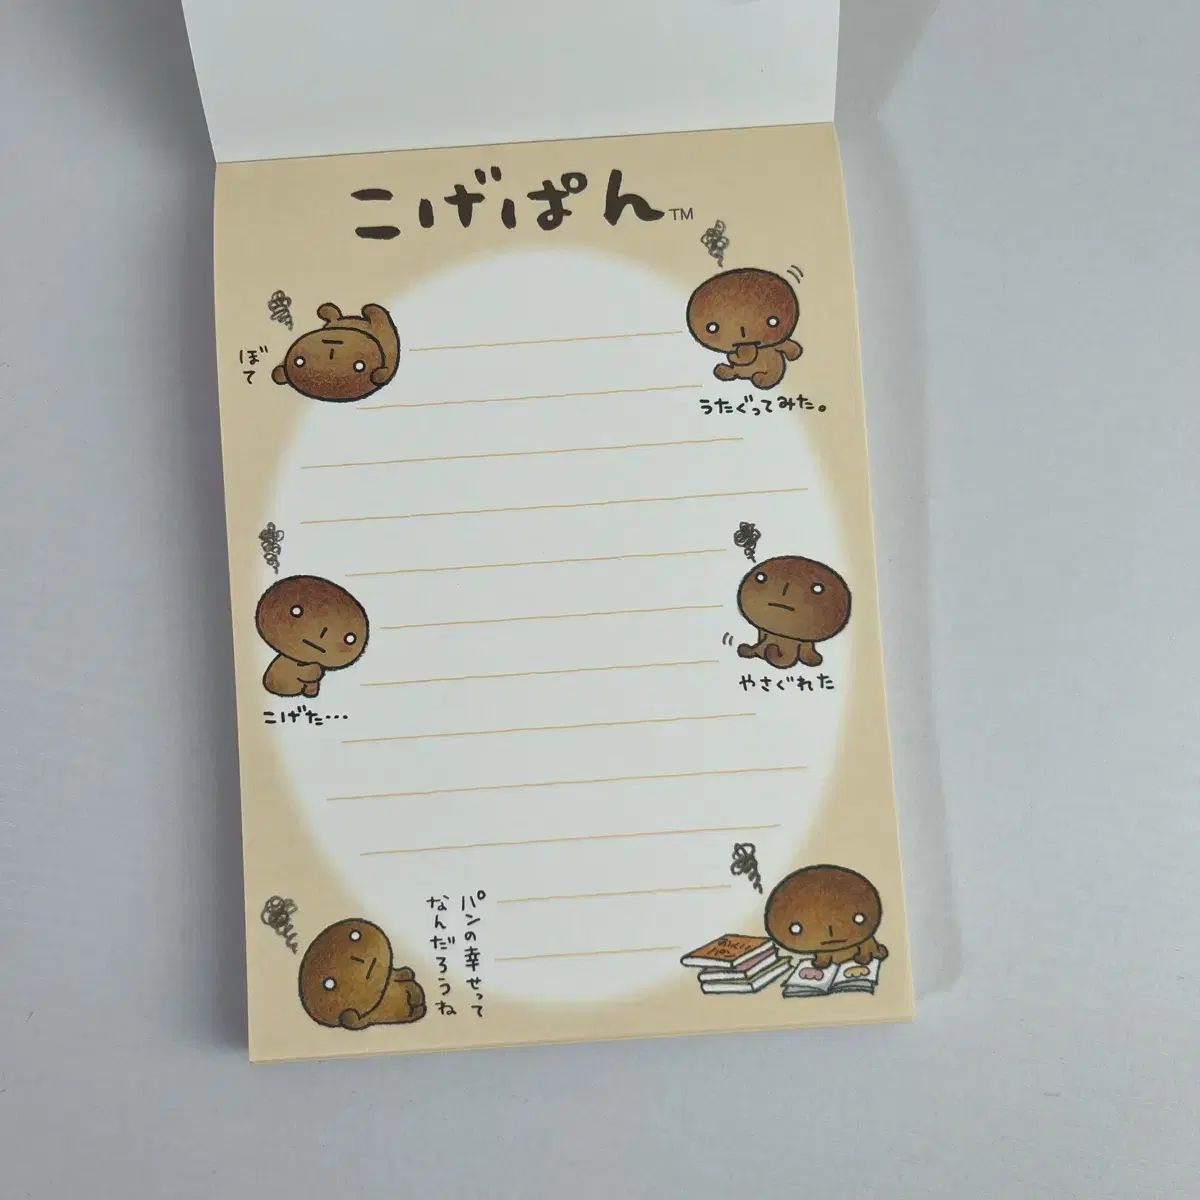 こげぱん™
ぼて
うたぐってみた。
こげた…
やさぐれた
パンの幸せって
なんだろうね